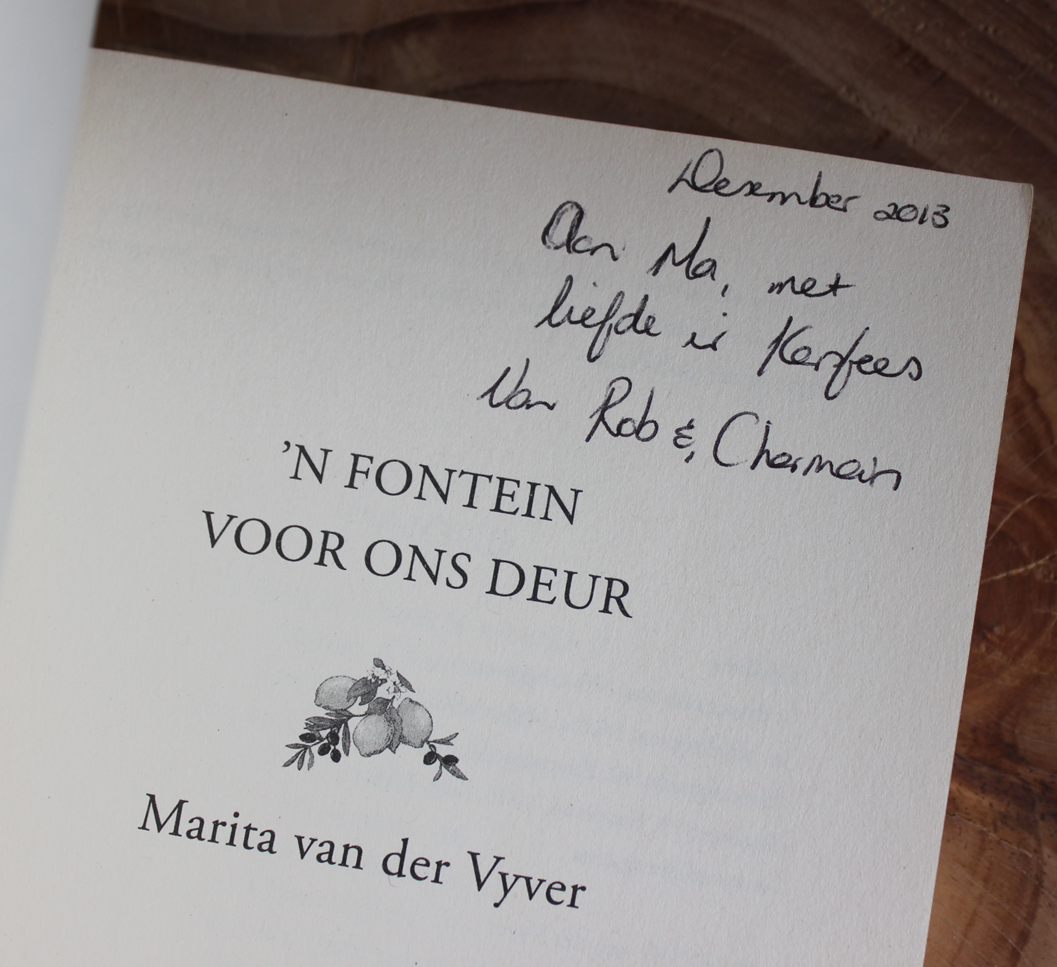 Desember 2013
Aan Ma, met
liefde is Kersfees
Van Rob & Charmain
'N FONTEIN
VOOR ONS DEUR
Marita van der Vyver